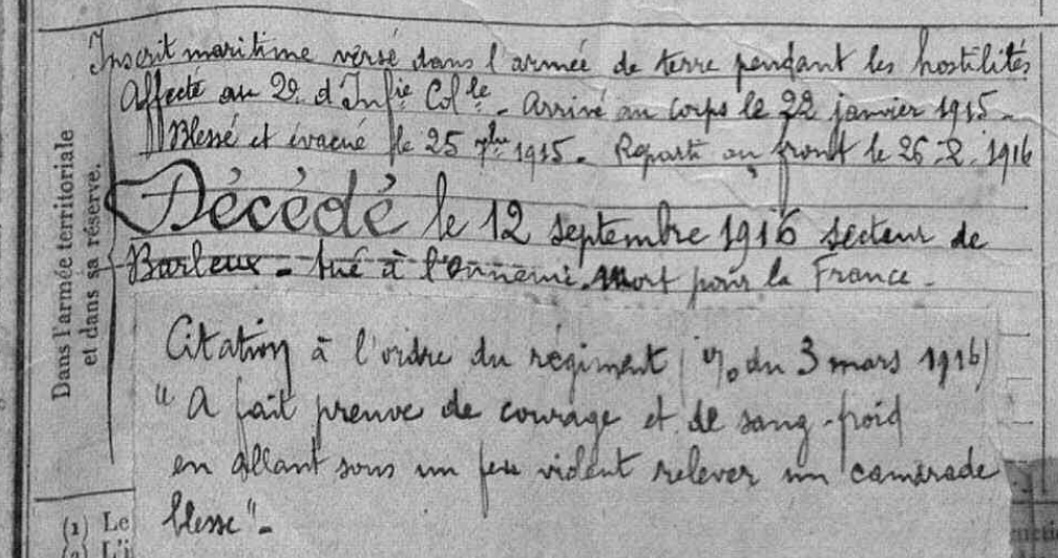 Dans l'armée territoriale
et dans sa réserve.
Inscrit maritime versé dans l'armée de terre pendant les hostilités
Affecté au 2e d'Infie Colle - Arrivé au corps le 22 janvier 1915 -
Blessé et évacué le 25 7bre 1915 - Reparti au front le 26-2-1916
Décédé le 12 septembre 1916 secteur de
Barleux - tué à l'ennemi. Mort pour la France -
Citation à l'ordre du régiment (o/o du 3 mars 1916)
"A fait preuve de courage et de sang-froid
en allant sous un feu violent relever un camarade
blessé"-
(1) Le
(2) L'i